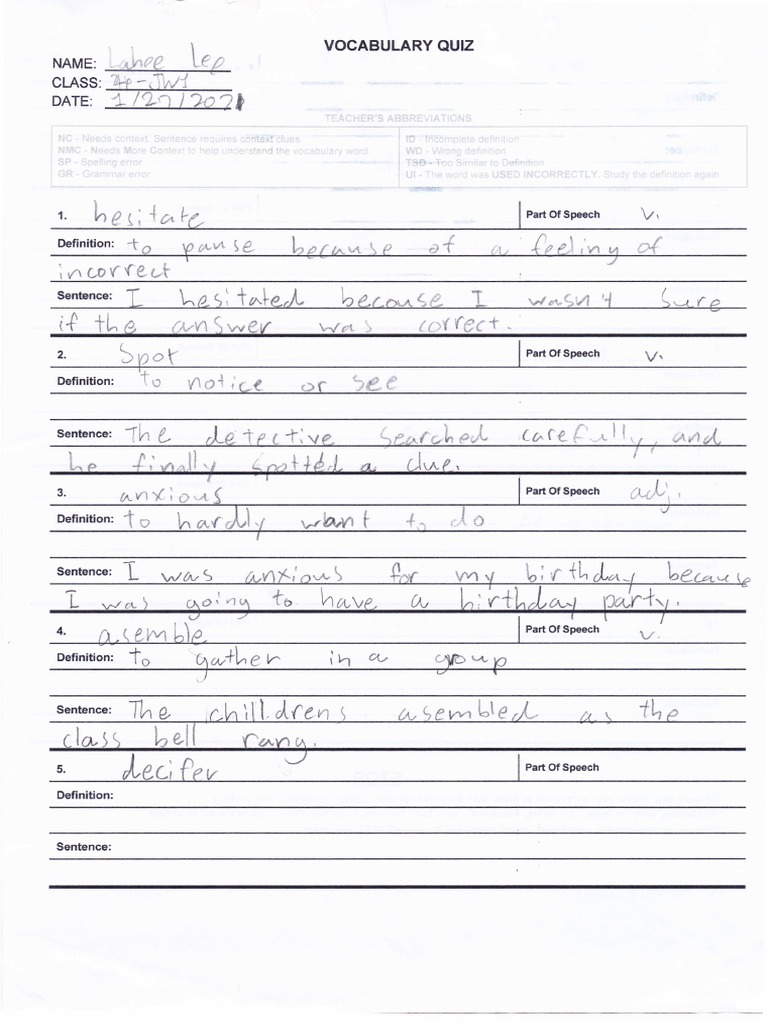 VOCABULARY QUIZ
NAME: Lahee Lee
CLASS: 4P-JW1
DATE: 1/27/2021
TEACHER'S ABBREVIATIONS
NC - Needs context. Sentence requires context clues
NMC - Needs More Context to help understand the vocabulary word.
SP - Spelling error
GR - Grammar error
ID - Incomplete definition
WD - Wrong definition
TSD - Too Similar to Definition
UI - The word was USED INCORRECTLY. Study the definition again
1. hesitate Part Of Speech v.
Definition: to pause because of a feeling of
incorrect
Sentence: I hesitated because I wasn't sure
if the answer was correct.
2. Spot Part Of Speech v.
Definition: to notice or see
Sentence: The detective searched carefully, and
he finally spotted a clue.
3. anxious Part Of Speech adj.
Definition: to hardly want to do
Sentence: I was anxious for my birthday because
I was going to have a birthday party.
4. asemble Part Of Speech v.
Definition: to gather in a group
Sentence: The chilldrens asembled as the
class bell rang.
5. decifer Part Of Speech
Definition:
Sentence: